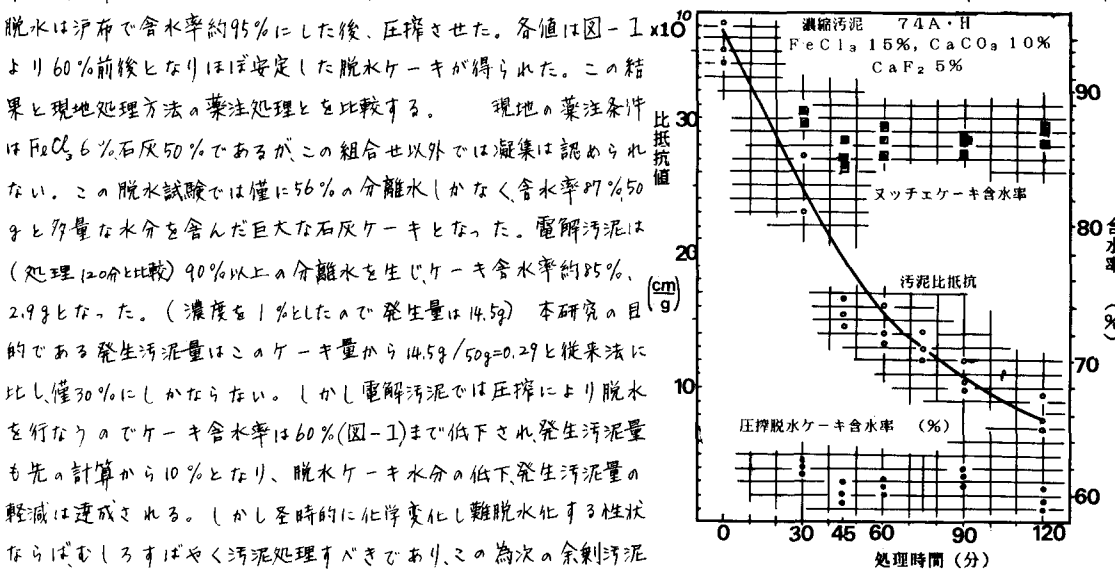 脱水は沪布で含水率約95%にした後、圧搾させた。各値は図-1
より60%前後となりほぼ安定した脱水ケーキが得られた。この結
果と現地処理方法の薬注処理とを比較する。 現地の薬注条件
はFeCl₃6%石灰50%であるが、この組合せ以外では凝集は認められ
ない。この脱水試験では僅に56%の分離水しかなく、含水率87%、50
gと多量な水分を含んだ巨大な石灰ケーキとなった。電解汚泥は
(処理120分と比較) 90%以上の分離水を生じケーキ含水率約85%、
2.9gとなった。(濃度を1%としたので発生量は14.5g) 本研究の目
的である発生汚泥量はこのケーキ量から14.5g/50g=0.29と従来法に
比し、僅30%にしかならない。しかし電解汚泥では圧搾により脱水
を行なうのでケーキ含水率は60%(図-1)まで低下され発生汚泥量
も先の計算から10%となり、脱水ケーキ水分の低下、発生汚泥量の
軽減は達成される。しかし経時的に化学変化し難脱水化する性状
ならば、むしろすばやく汚泥処理すべきであり、この為次の余剰汚泥
x10¹⁰
濃縮汚泥 74A・H
FeCl₃ 15%, CaCO₃ 10%
CaF₂ 5%
比抵抗値
(cm/g)
30
20
10
90
80
70
60
含水率(%)
ヌッチェケーキ含水率
汚泥比抵抗
圧搾脱水ケーキ含水率 (%)
0 30 45 60 90 120
処理時間(分)